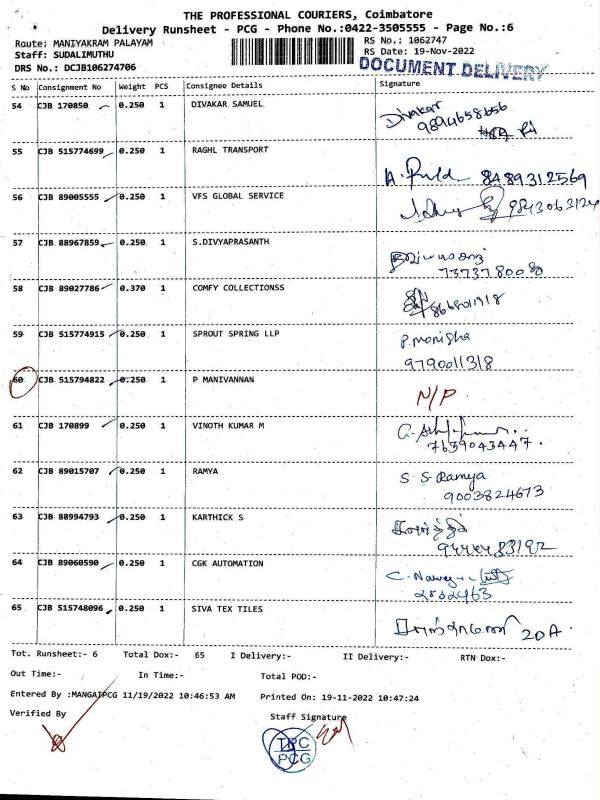 THE PROFESSIONAL COURIERS, Coimbatore
Delivery Runsheet - PCG - Phone No.:0422-3505555 - Page No.:6
Route: MANIYAKRAM PALAYAM RS No.: 1062747
Staff: SUDALIMUTHU RS Date: 19-Nov-2022
DRS No.: DCJB106274706 DOCUMENT DELIVERY
S No Consignment No Weight PCS Consignee Details Signature
54 CJB 170850 0.250 1 DIVAKAR SAMUEL Divakar
9894658656
55 CJB 515774699 0.250 1 RAGHL TRANSPORT
8489312569
56 CJB 89005555 0.250 1 VFS GLOBAL SERVICE
9843063124
57 CJB 88967859 0.250 1 S.DIVYAPRASANTH
7373780008
58 CJB 89027786 0.370 1 COMFY COLLECTIONSS
8668011918
59 CJB 515774915 0.250 1 SPROUT SPRING LLP P.monisha
9790011318
60 CJB 515794822 0.250 1 P MANIVANNAN
N/P
61 CJB 170899 0.250 1 VINOTH KUMAR M
7639043447.
62 CJB 89015707 0.250 1 RAMYA S. S. Ramya
9003824673
63 CJB 88994793 0.250 1 KARTHICK S
64 CJB 89060590 0.250 1 CGK AUTOMATION
65 CJB 515748096 0.250 1 SIVA TEX TILES
20A
Tot. Runsheet:- 6 Total Dox:- 65 I Delivery:- II Delivery:- RTN Dox:-
Out Time:- In Time:- Total POD:-
Entered By :MANGAIPCG 11/19/2022 10:46:53 AM Printed On: 19-11-2022 10:47:24
Verified By Staff Signature
TPC
PCG